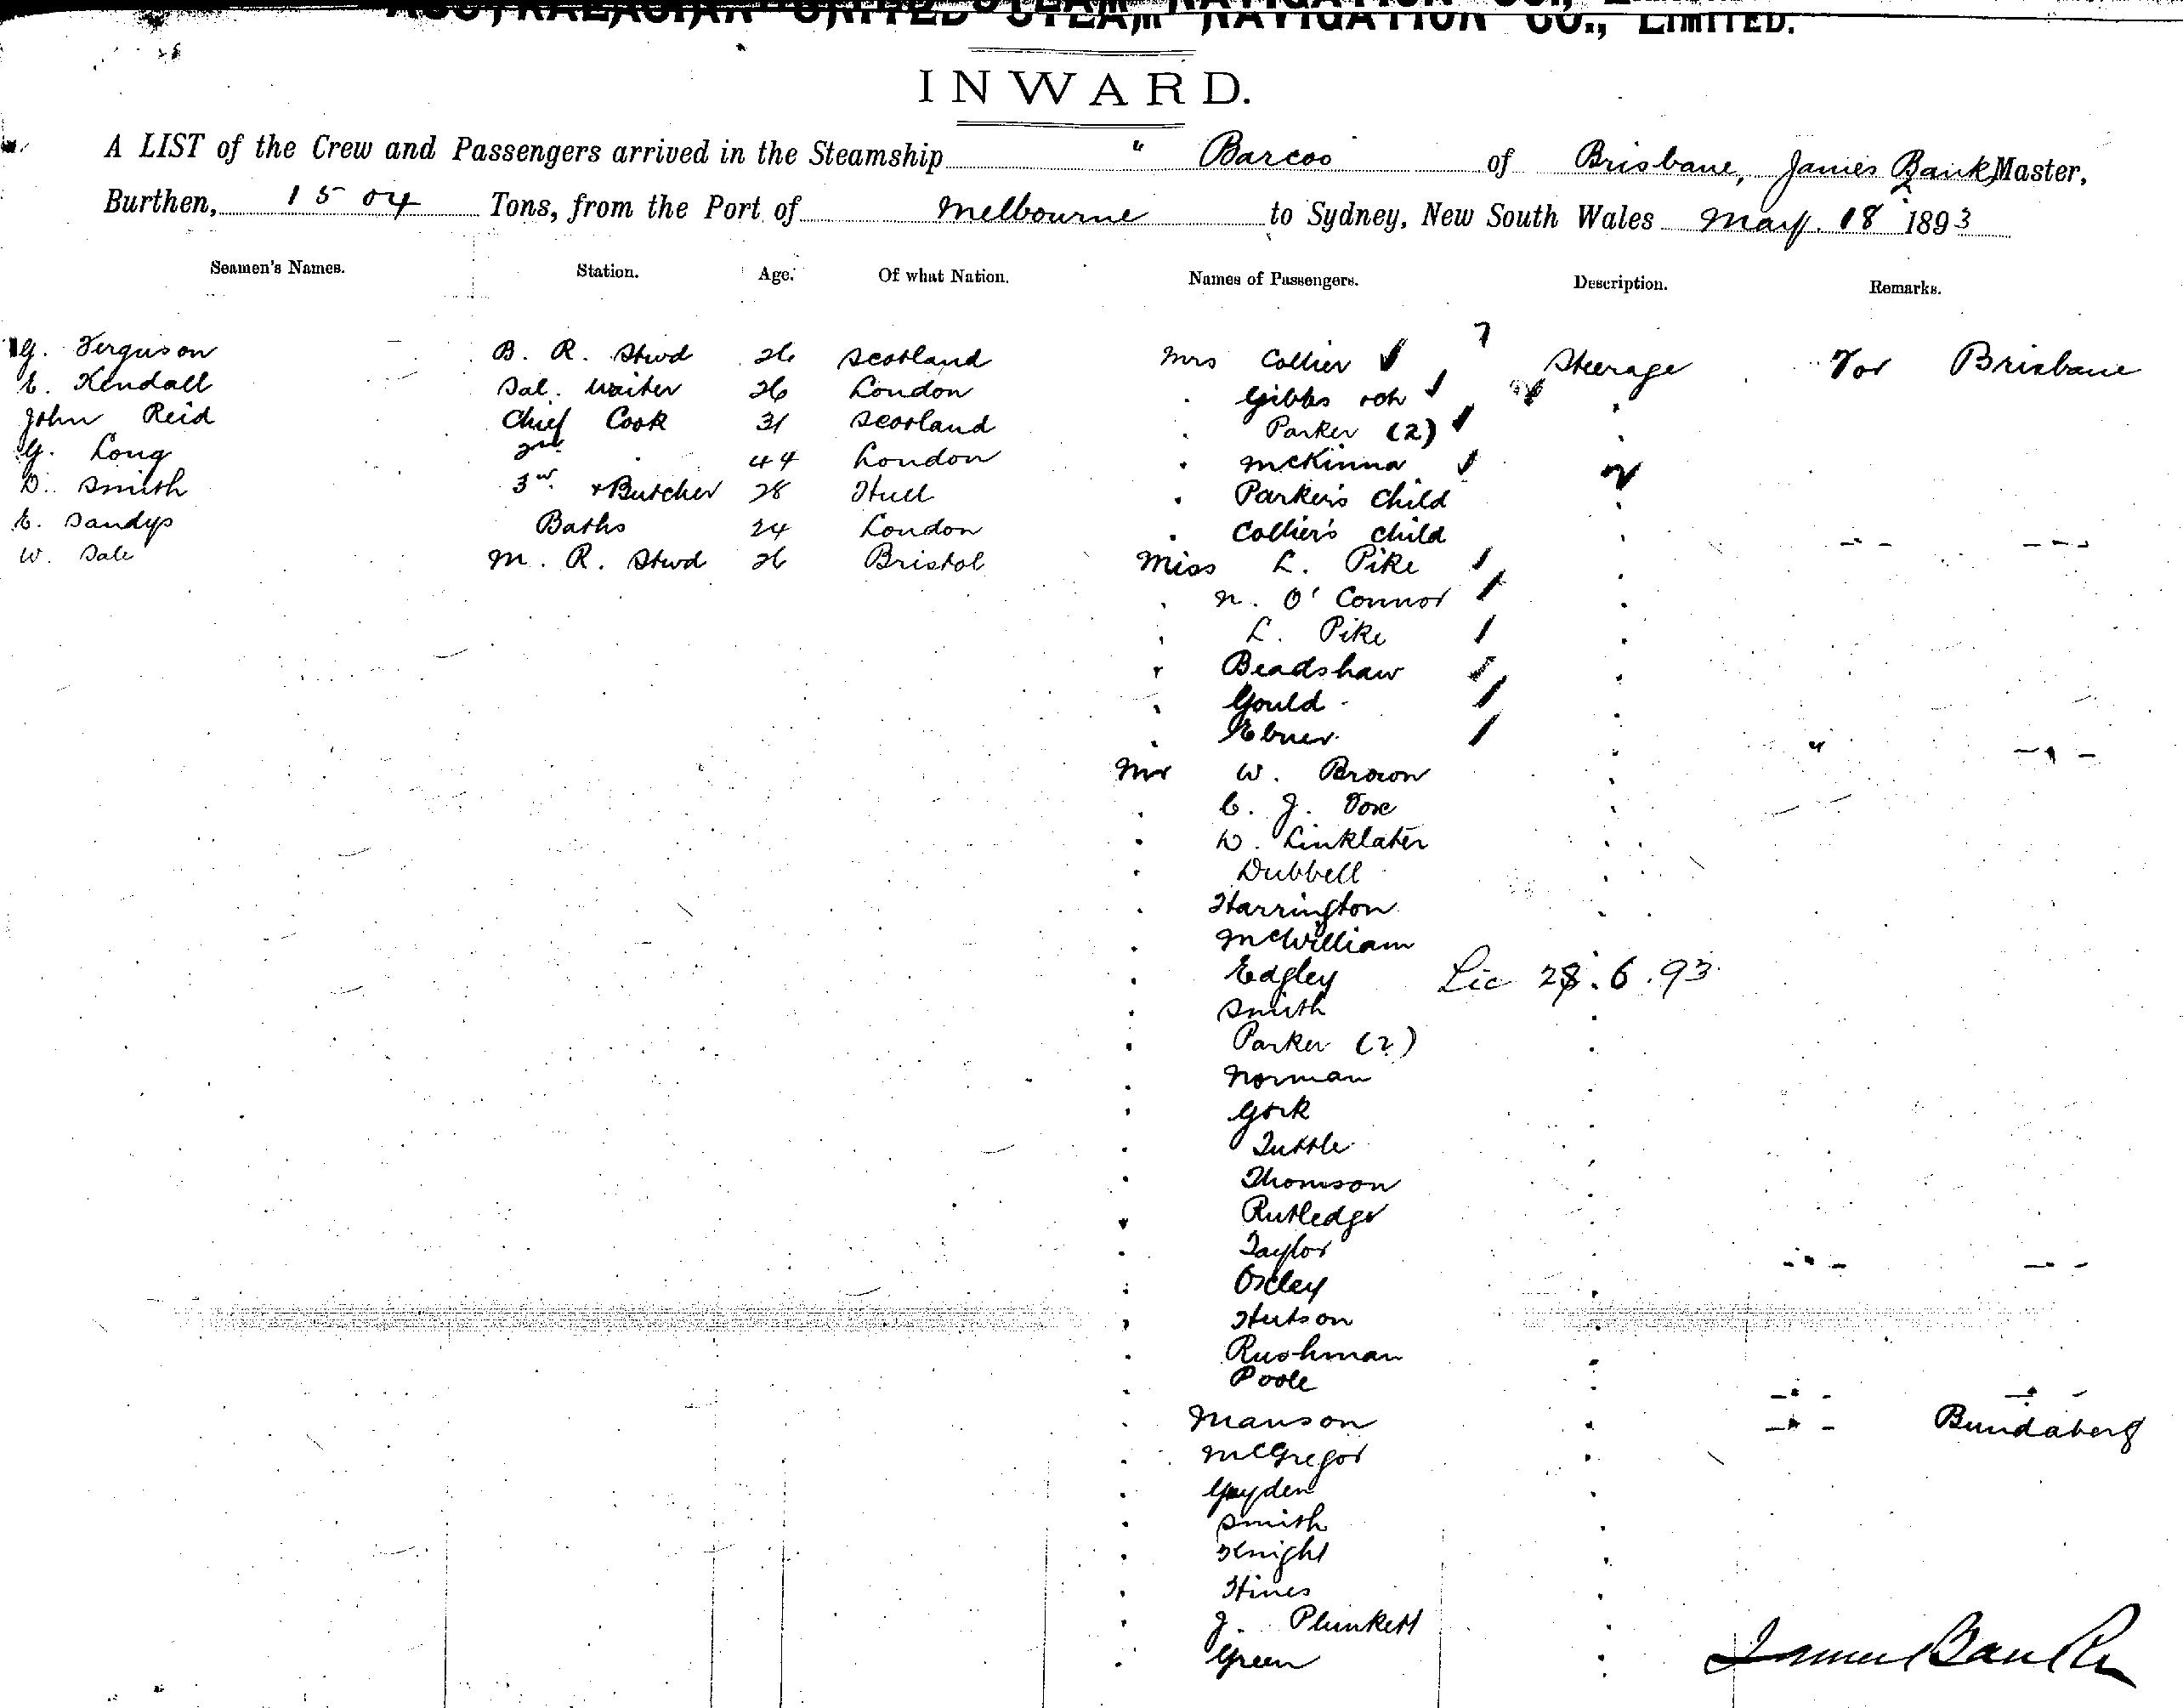 AUSTRALASIAN UNITED STEAM NAVIGATION CO., LIMITED.
INWARD.
A LIST of the Crew and Passengers arrived in the Steamship " Barcoo of Brisbane, James Banks Master,
Burthen, 1504 Tons, from the Port of Melbourne to Sydney, New South Wales May. 18 1893
Seamen's Names. Station. Age. Of what Nation. Names of Passengers. Description. Remarks.
7
G. Ferguson B. R. Stwd 26 Scotland Mrs Collier Steerage For Brisbane
E. Kendall Sal. Waiter 26 London Gibbs
John Reid Chief Cook 31 Scotland Parker (2)
G. Long 2nd 44 London McKinna
D. Smith 3rd + Butcher 28 Hull Parker's Child
E. Sandys Baths 24 London Collier's Child
W. Sale M. R. Stwd 26 Bristol Miss L. Pike
N. O'Connor
L. Pike
Beadshaw
Gould
Ebner
Mr W. Brown
C. J. Fox
D. Linklater
Dubbell
Harrington
McWilliam
Edgley Lic 28.6.93
Smith
Parker (2)
Norman
York
Tuttle
Thomson
Rutledge
Taylor
Oxley
Hutson
Rushman
Poole
Manson Bundaberg
McGregor
Smith
Knight
Hines
J. Plunkett
Green
James Banks